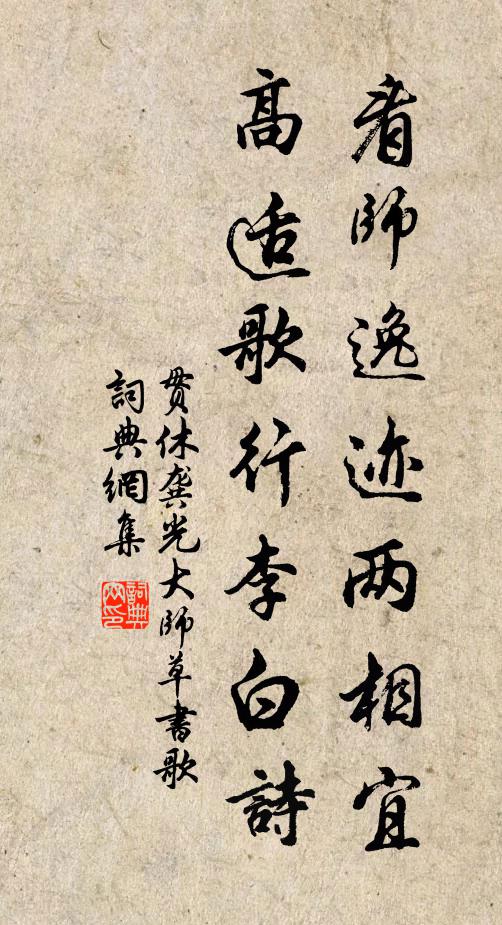 看師逸迹两相宜
高适歌行李白詩
貫休龔光大師草書歌
詞典網集
詞典網印